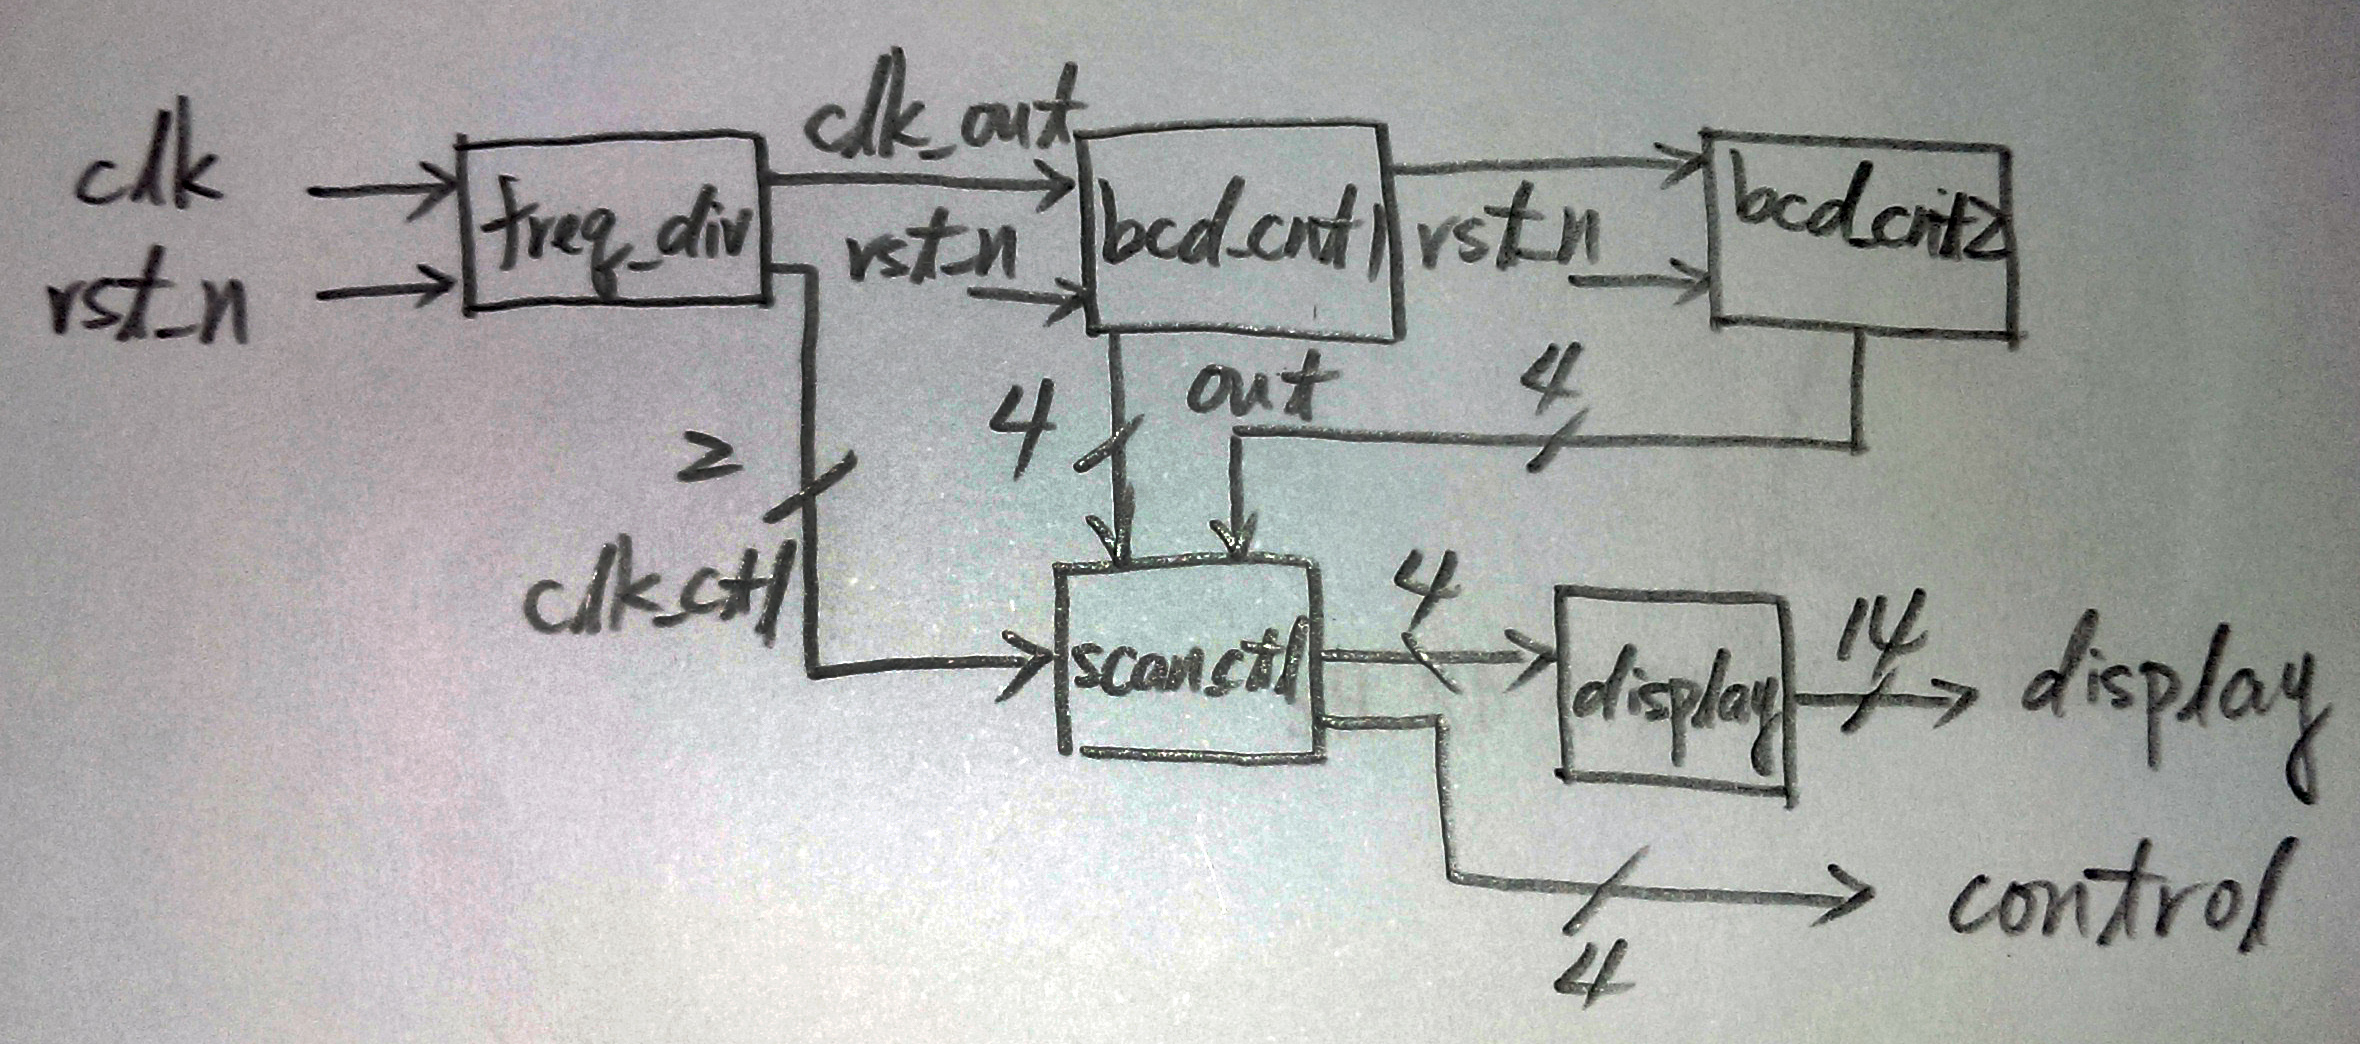 clk
rst_n
freq_div
clk_out
rst_n
bcd_cnt1
rst_n
bcd_cnt2
2
clk_ctl
4
out
4
scanctl
4
display
14
display
4
control